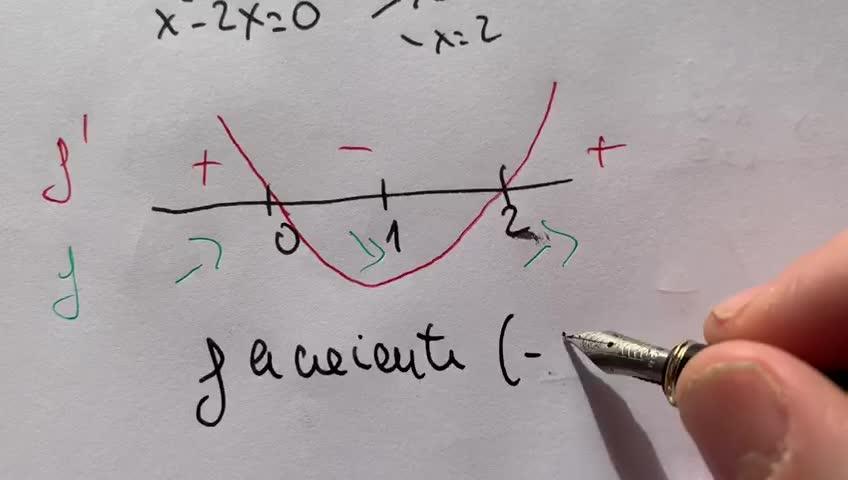 x²-2x=0
x=2
f' + - +
0 1 2
f
f creciente (-